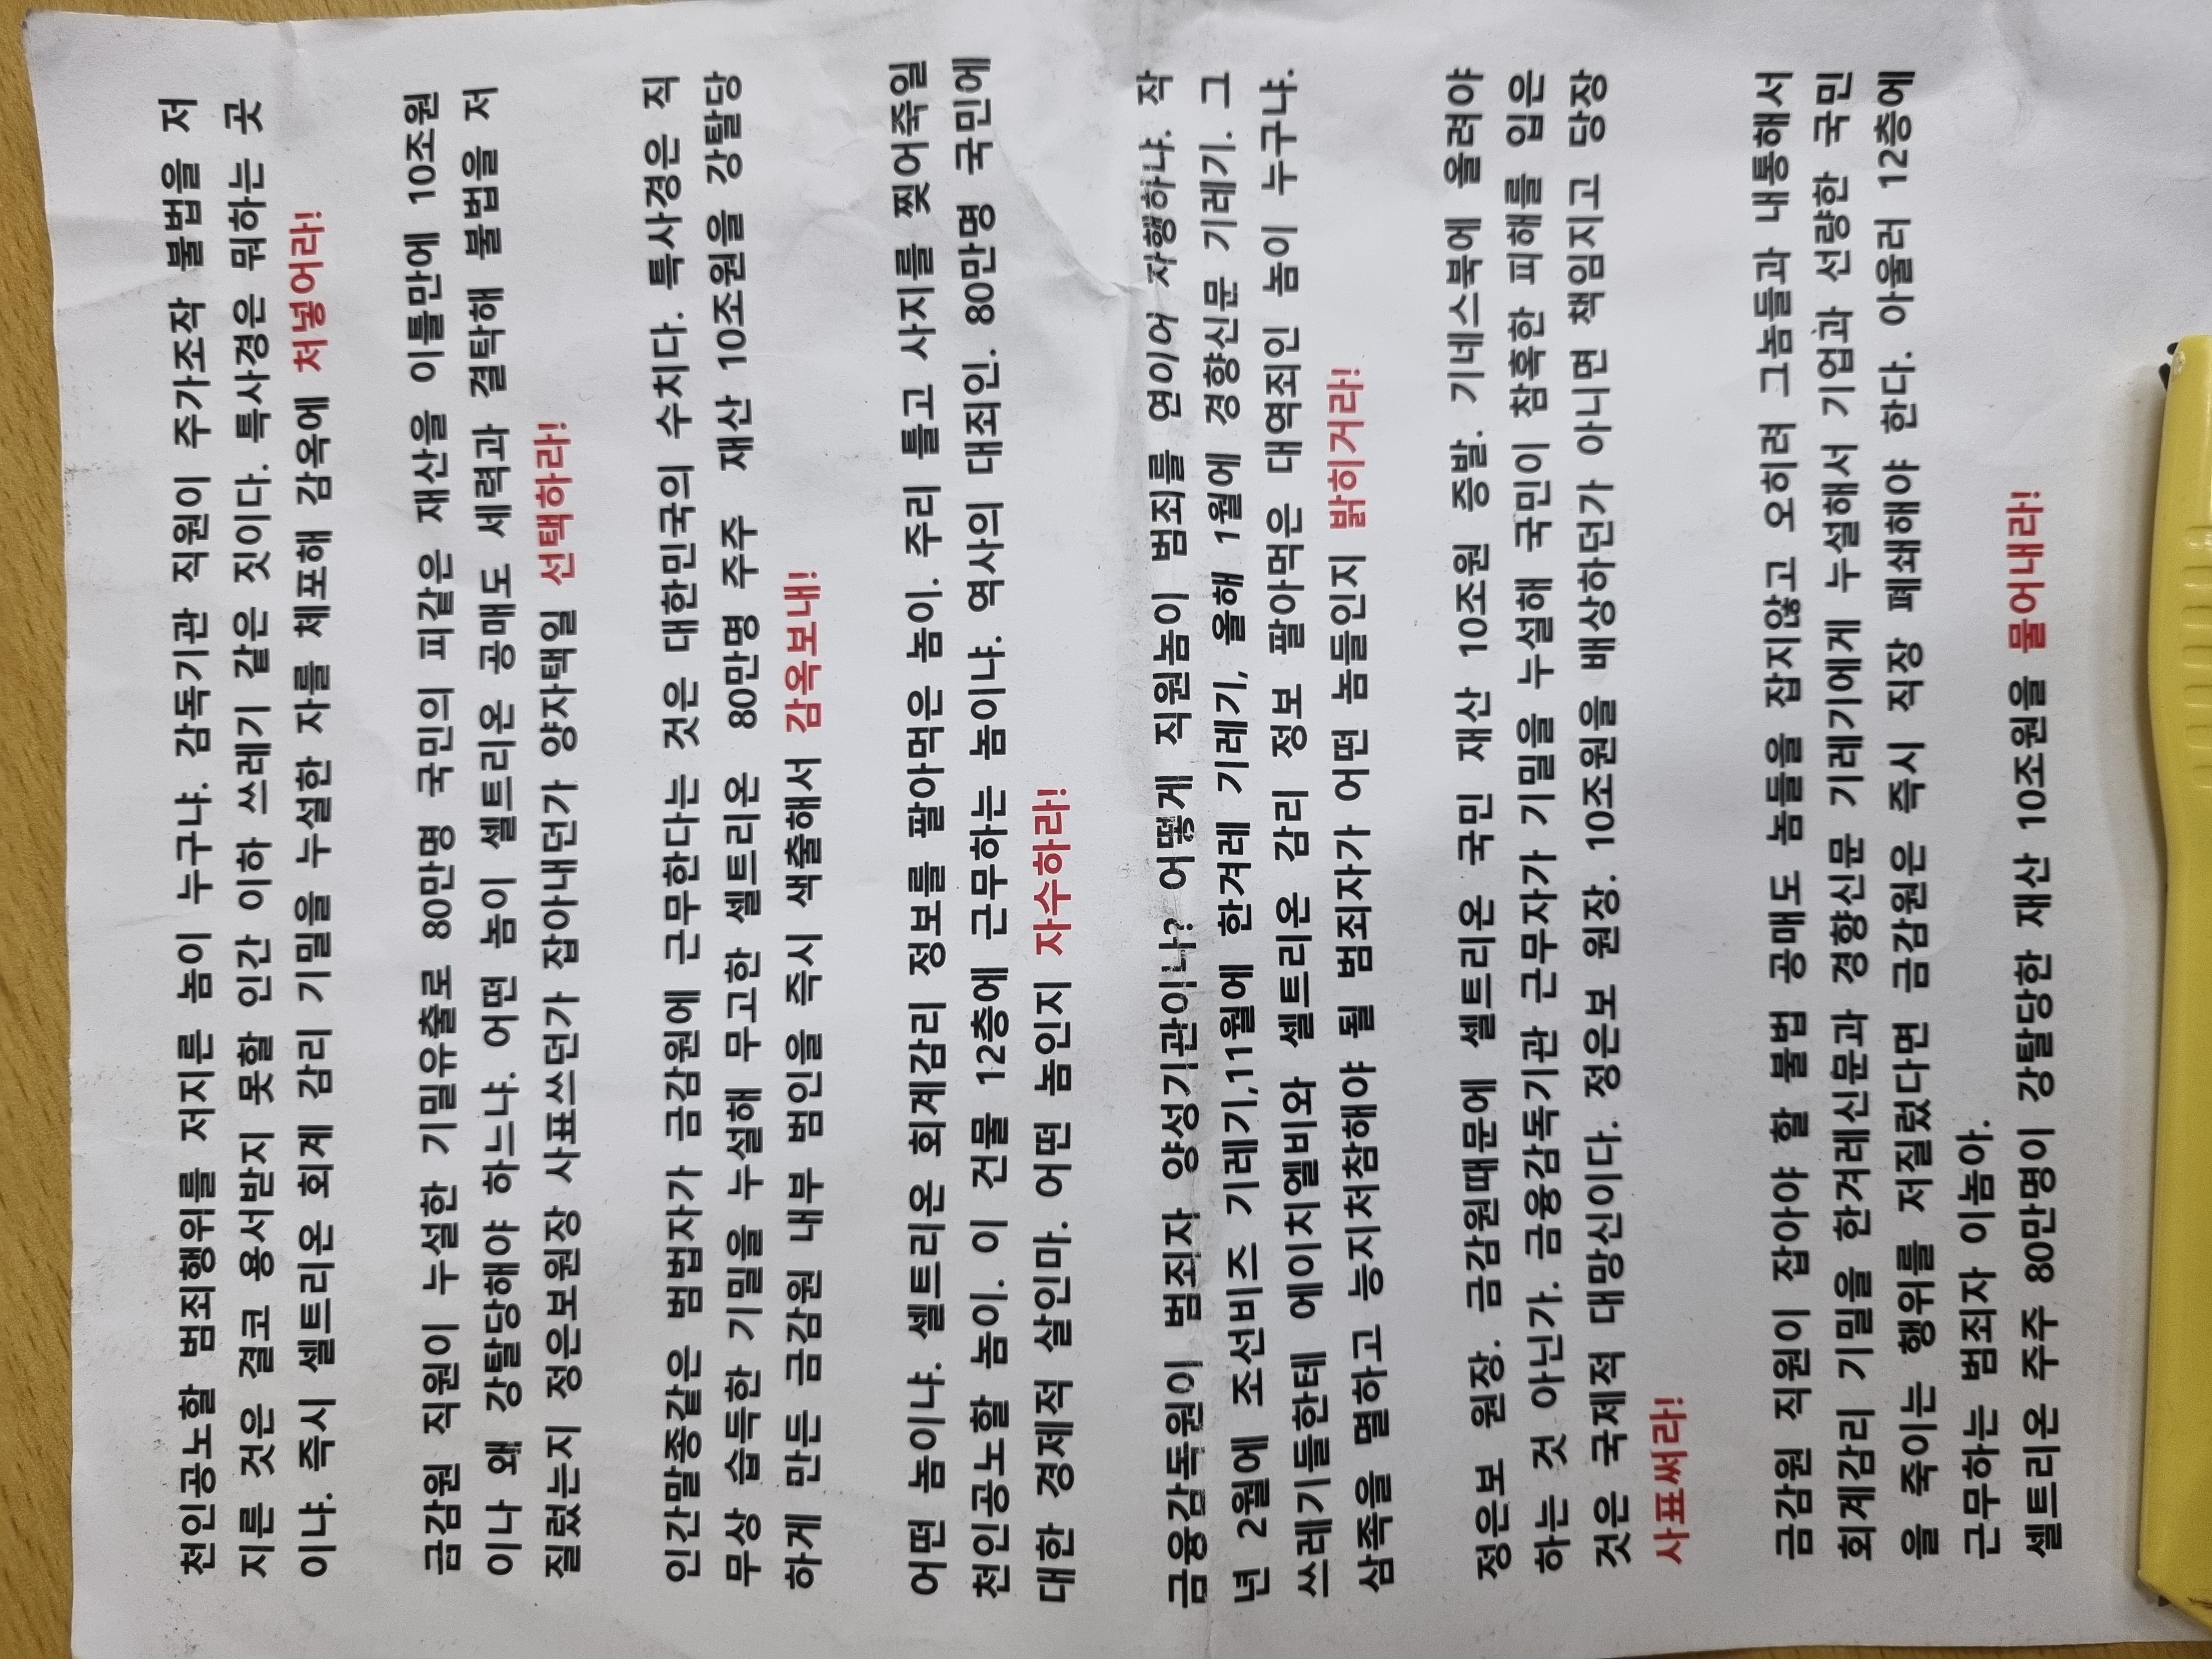 천인공노할 범죄행위를 저지른 놈이 누구냐. 감독기관 직원이 주가조작 불법을 저
지른 것은 결코 용서받지 못할 인간 이하 쓰레기 같은 짓이다. 특사경은 뭐하는 곳
이냐. 즉시 셀트리온 회계 감리 기밀을 누설한 자를 체포해 감옥에 처넣어라!
금감원 직원이 누설한 기밀유출로 80만명 국민의 피같은 재산을 이틀만에 10조원
이나 왜 강탈당해야 하느냐. 어떤 놈이 셀트리온 공매도 세력과 결탁해 불법을 저
질렀는지 정은보원장 사표쓰던가 잡아내던가 양자택일 선택하라!
인간말종같은 범법자가 금감원에 근무한다는 것은 대한민국의 수치다. 특사경은 직
무상 습득한 기밀을 누설해 무고한 셀트리온 80만명 주주 재산 10조원을 강탈당
하게 만든 금감원 내부 범인을 즉시 색출해서 감옥보내!
어떤 놈이냐. 셀트리온 회계감리 정보를 팔아먹은 놈이. 주리 틀고 사지를 찢어죽일
천인공노할 놈이. 이 건물 12층에 근무하는 놈이냐. 역사의 대죄인. 80만명 국민에
대한 경제적 살인마. 어떤 놈인지 자수하라!
금융감독원이 범죄자 양성기관이냐? 어떻게 직원놈이 범죄를 연이어 자행하냐. 작
년 2월에 조선비즈 기레기,11월에 한겨레 기레기, 올해 1월에 경향신문 기레기. 그
쓰레기들한테 에이치엘비와 셀트리온 감리 정보 팔아먹은 대역죄인 놈이 누구냐.
삼족을 멸하고 능지처참해야 될 범죄자가 어떤 놈들인지 밝히거라!
정은보 원장. 금감원때문에 셀트리온 국민 재산 10조원 증발. 기네스북에 올려야
하는 것 아닌가. 금융감독기관 근무자가 기밀을 누설해 국민이 참혹한 피해를 입은
것은 국제적 대망신이다. 정은보 원장. 10조원을 배상하던가 아니면 책임지고 당장
사표써라!
금감원 직원이 잡아야 할 불법 공매도 놈들을 잡지않고 오히려 그놈들과 내통해서
회계감리 기밀을 한겨레신문과 경향신문 기레기에게 누설해서 기업과 선량한 국민
을 죽이는 행위를 저질렀다면 금감원은 즉시 직장 폐쇄해야 한다. 아울러 12층에
근무하는 범죄자 이놈아.
셀트리온 주주 80만명이 강탈당한 재산 10조원을 물어내라!